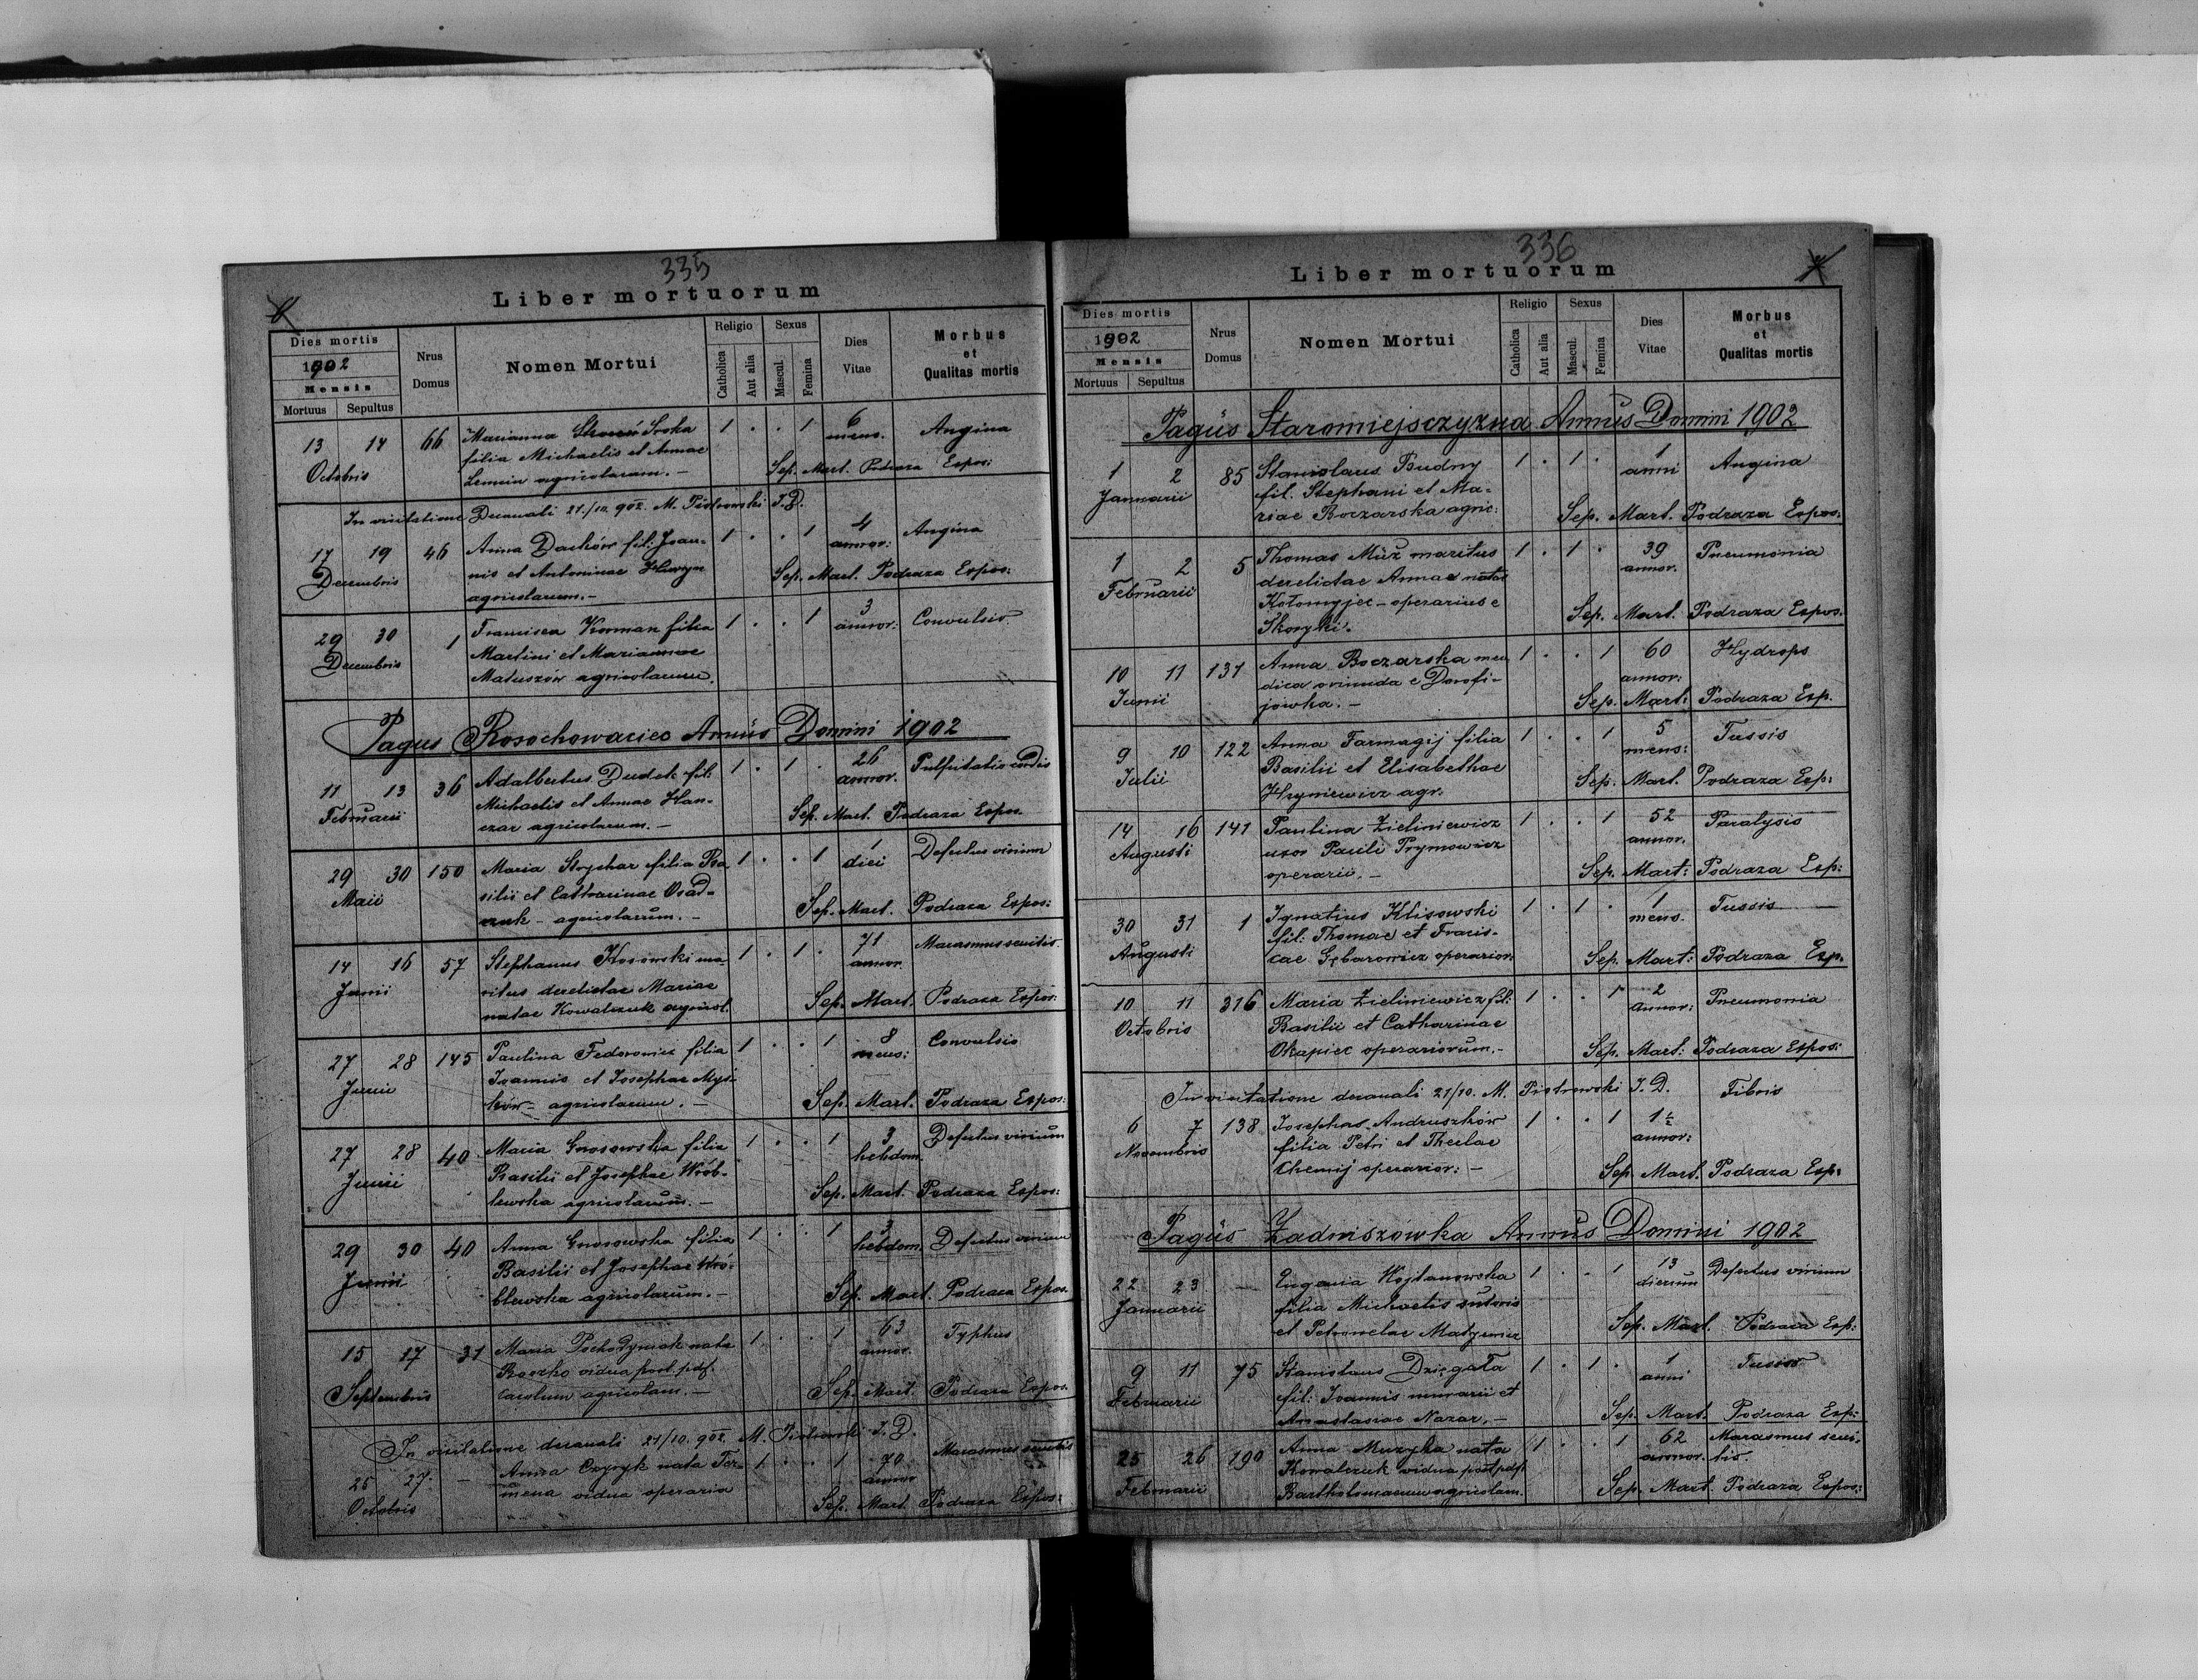 335
Liber mortuorum
Dies mortis
1902
Mensis
Mortuus Sepultus
Nrus Domus
Nomen Mortui
Religio
Catholica
Aut alia
Sexus
Mascul.
Femina
Dies Vitae
Morbus et Qualitas mortis
13 14 66 Marianna Sroka 1 . . 1 6 Angina
Octobris filia Michaelis et Annae mens.
agricolarum. – Sep. Mart. Podraza Expos:
In visitatione Decanali 21/10. 902. M. Piotrowski I. D.
17 19 46 Anna Dacków fil: Joan- 1 . . 1 4 Angina
Decembris nis et Antoninae annor:
agricolarum. – Sep. Mart. Podraza Expos:
29 30 1 Francisca Korman filia 1 . . 1 3 Convulsio
Decembris Martini et Mariannae annor:
Matuszów agricolarum.
Pagus Rosochowaciec Annus Domini 1902
11 13 36 Adalbertus Dudek fil: 1 . 1 . 26 Pulsitatio cordis
Februarii Michaelis et Annae Han- annor.
czar agricolarum. – Sep. Mart. Podraza Expos.
29 30 150 Maria Strychar filia Ba- 1 . . 1 1 Defectus virium
Maii silii et Catharinae Osad- diei
czuk – agricolarum. – Sep. Mart. Podraza Expos:
14 16 57 Stephanus Kosowski ma- 1 . 1 . 71 Marasmus senilis
Junii ritus derelictae Mariae annor.
natae Kowalczuk agricol. Sep. Mart. Podraza Expos:
27 28 145 Paulina Fedorowicz filia 1 . . 1 8 Convulsio
Junii Joannis et Josephae Myś- mens:
ków – agricolarum. – Sep. Mart. Podraza Expos:
27 28 40 Maria Gnosowska filia 1 . . 1 3 Defectus virium
Junii Basilii et Josephae Wrób- hebdom.
lewska agricolarum. – Sep. Mart. Podraza Expos:
29 30 40 Anna Gnosowska filia 1 . . 1 3 Defectus virium
Junii Basilii et Josephae Wró- hebdom.
blewska agricolarum. – Sep. Mart. Podraza Expos.
15 17 31 Maria Pochodyniak nata 1 . . 1 63 Typhus
Septembris Boczko vidua post pdf. annor.
Carolum agricolam. – Sep. Mart. Podraza Expos.
In visitatione decanali 21/10. 902. M. Piotrowski I. D.
25 27. – Anna Czyryk nata Ter- 1 . . 1 70 Marasmus senilis
Octobris mena vidua operaria annor
Sep. Mart. Podraza Expos:
336
Liber mortuorum
Dies mortis
1902
Mensis
Mortuus Sepultus
Nrus Domus
Nomen Mortui
Religio
Catholica
Aut alia
Sexus
Mascul.
Femina
Dies Vitae
Morbus et Qualitas mortis
Pagus Staromiejszczyzna Annus Domini 1902
1 2 85 Stanislaus Budny 1 . 1 . 1 Angina
Januarii fil. Stephani et Ma- anni
riae Boczarska agric: Sep. Mart. Podraza Expos:
1 2 5 Thomas Muż maritus 1 . 1 . 39 Pneumonia
Februarii derelictae Annae natae annor.
Kołomyjec – operarius e Sep. Mart. Podraza Expos.
Skoryki.
10 11 131 Anna Boczarska men 1 . . 1 60 Hydrops
Junii dica oriunda e Dorofi- annor:
jówka. – Sep. Mart: Podraza Exp.
9 10 122 Anna Farmagij filia 1 . . 1 5 Tussis
Julii Basilii et Elisabethae mens:
Hryniewicz agr. Sep. Mart. Podraza Exp:
14 16 141 Paulina Zieliniewicz 1 . . 1 52 Paralysis
Augusti uxor Pauli Prymowicz annor.
operarii. – Sep. Mart: Podraza Exp:
30 31 1 Ignatius Klisowski 1 . 1 . 1 Tussis
Augusti fil: Thomae et Francis- mens.
cae Gębarowicz operarior: Sep. Mart: Podraza Exp.
10 11 316 Maria Zieliniewicz fil: 1 . . 1 2 Pneumonia
Octobris Basilii et Catharinae annor:
Okapiec operariorum. – Sep. Mart: Podraza Expos:
In visitatione decanali 21/10. M. Piotrowski I. D.
6 7 138 Josephae Andruszków 1 . . 1 Fibris
Novembris filia Petri et Theclae annor:
Chemij operarior: – Sep. Mart. Podraza Exp:
Pagus Zadniszówka Annus Domini 1902
22 23 – Eugenia Wojtanowska 1 . . 1 13 Defectus virium
Januarii filia Michaelis sutoris dierum
et Petronelae Matyewicz Sep. Mart. Podraza Exp:
9 11 75 Stanislaus Dzięgała 1 . 1 . 1 Tussis
Februarii fil: Joannis murarii et anni
Anastasiae Nazar. – Sep. Mart. Podraza Exp:
25 26 190 Anna Muzyka nata 1 . . 1 62 Marasmus seni-
Februarii Kowalczuk vidua post pdf. annor. lis.
Bartholomaeum agricolam. Sep. Mart. Podraza Expos: